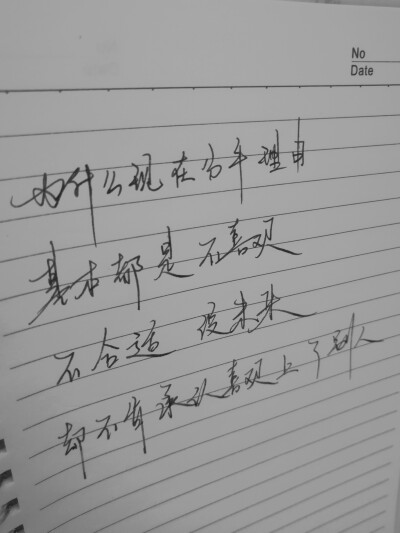 No
Date
为什么现在分手理由
基本都是不喜欢
不合适 没未来
却不肯承认喜欢上了别人